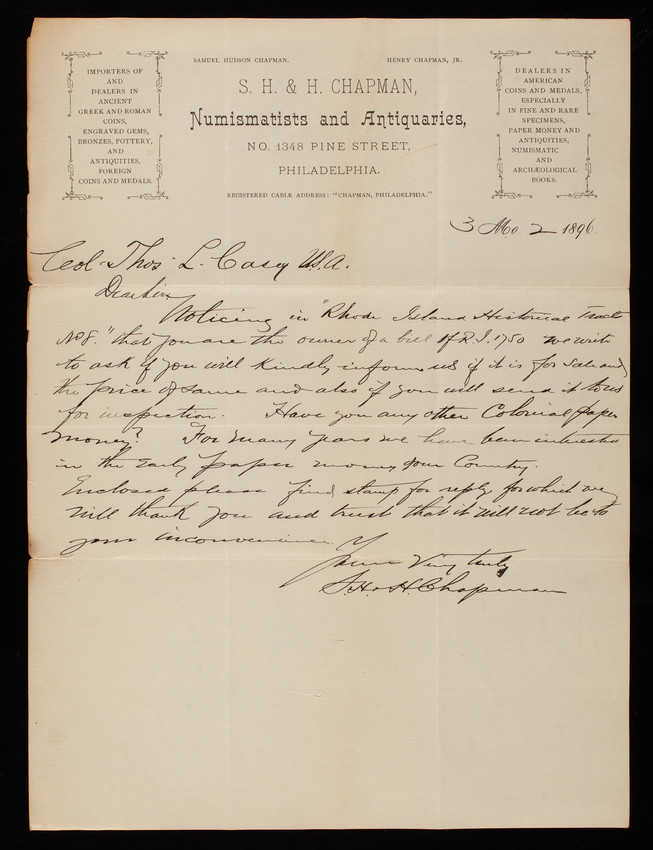 SAMUEL HUDSON CHAPMAN.
HENRY CHAPMAN, JR.
IMPORTERS OF
AND
DEALERS IN
ANCIENT
GREEK AND ROMAN
COINS,
ENGRAVED GEMS,
BRONZES, POTTERY,
AND
ANTIQUITIES,
FOREIGN
COINS AND MEDALS.
S. H. & H. CHAPMAN,
Numismatists and Antiquaries,
NO. 1348 PINE STREET,
PHILADELPHIA.
REGISTERED CABLE ADDRESS: "CHAPMAN, PHILADELPHIA."
DEALERS IN
AMERICAN
COINS AND MEDALS,
ESPECIALLY
IN FINE AND RARE
SPECIMENS,
PAPER MONEY AND
ANTIQUITIES,
NUMISMATIC
AND
ARCHÆOLOGICAL
BOOKS.
3 Mo 2 1896.
Col. Thos L. Casey U.S.A.
Dear Sir
Noticing in "Rhode Island Historical Tract
No 8." that you are the owner of a bill of R.I. 1750 we write
to ask if you will kindly inform us if it is for sale and
the price of same and also if you will send it to us
for inspection. Have you any other Colonial paper
money? For many years we have been interested
in the Early paper money of our Country.
Enclosed please find stamp for reply for which we
will thank you and trust that it will not be to
your inconvenience.
Yours Very truly
S.H. & H. Chapman